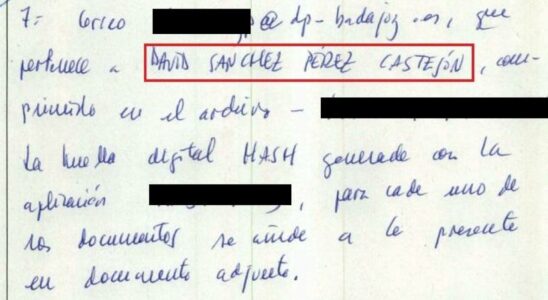 7= Correo @dp-badajoz.es, que
pertenece a DAVID SANCHEZ PÉREZ CASTEJÓN, com-
primido en el archivo -
La huella digital HASH generada con la
aplicación , para cada uno de
los documentos se añade a la presente
en documento adjunto.